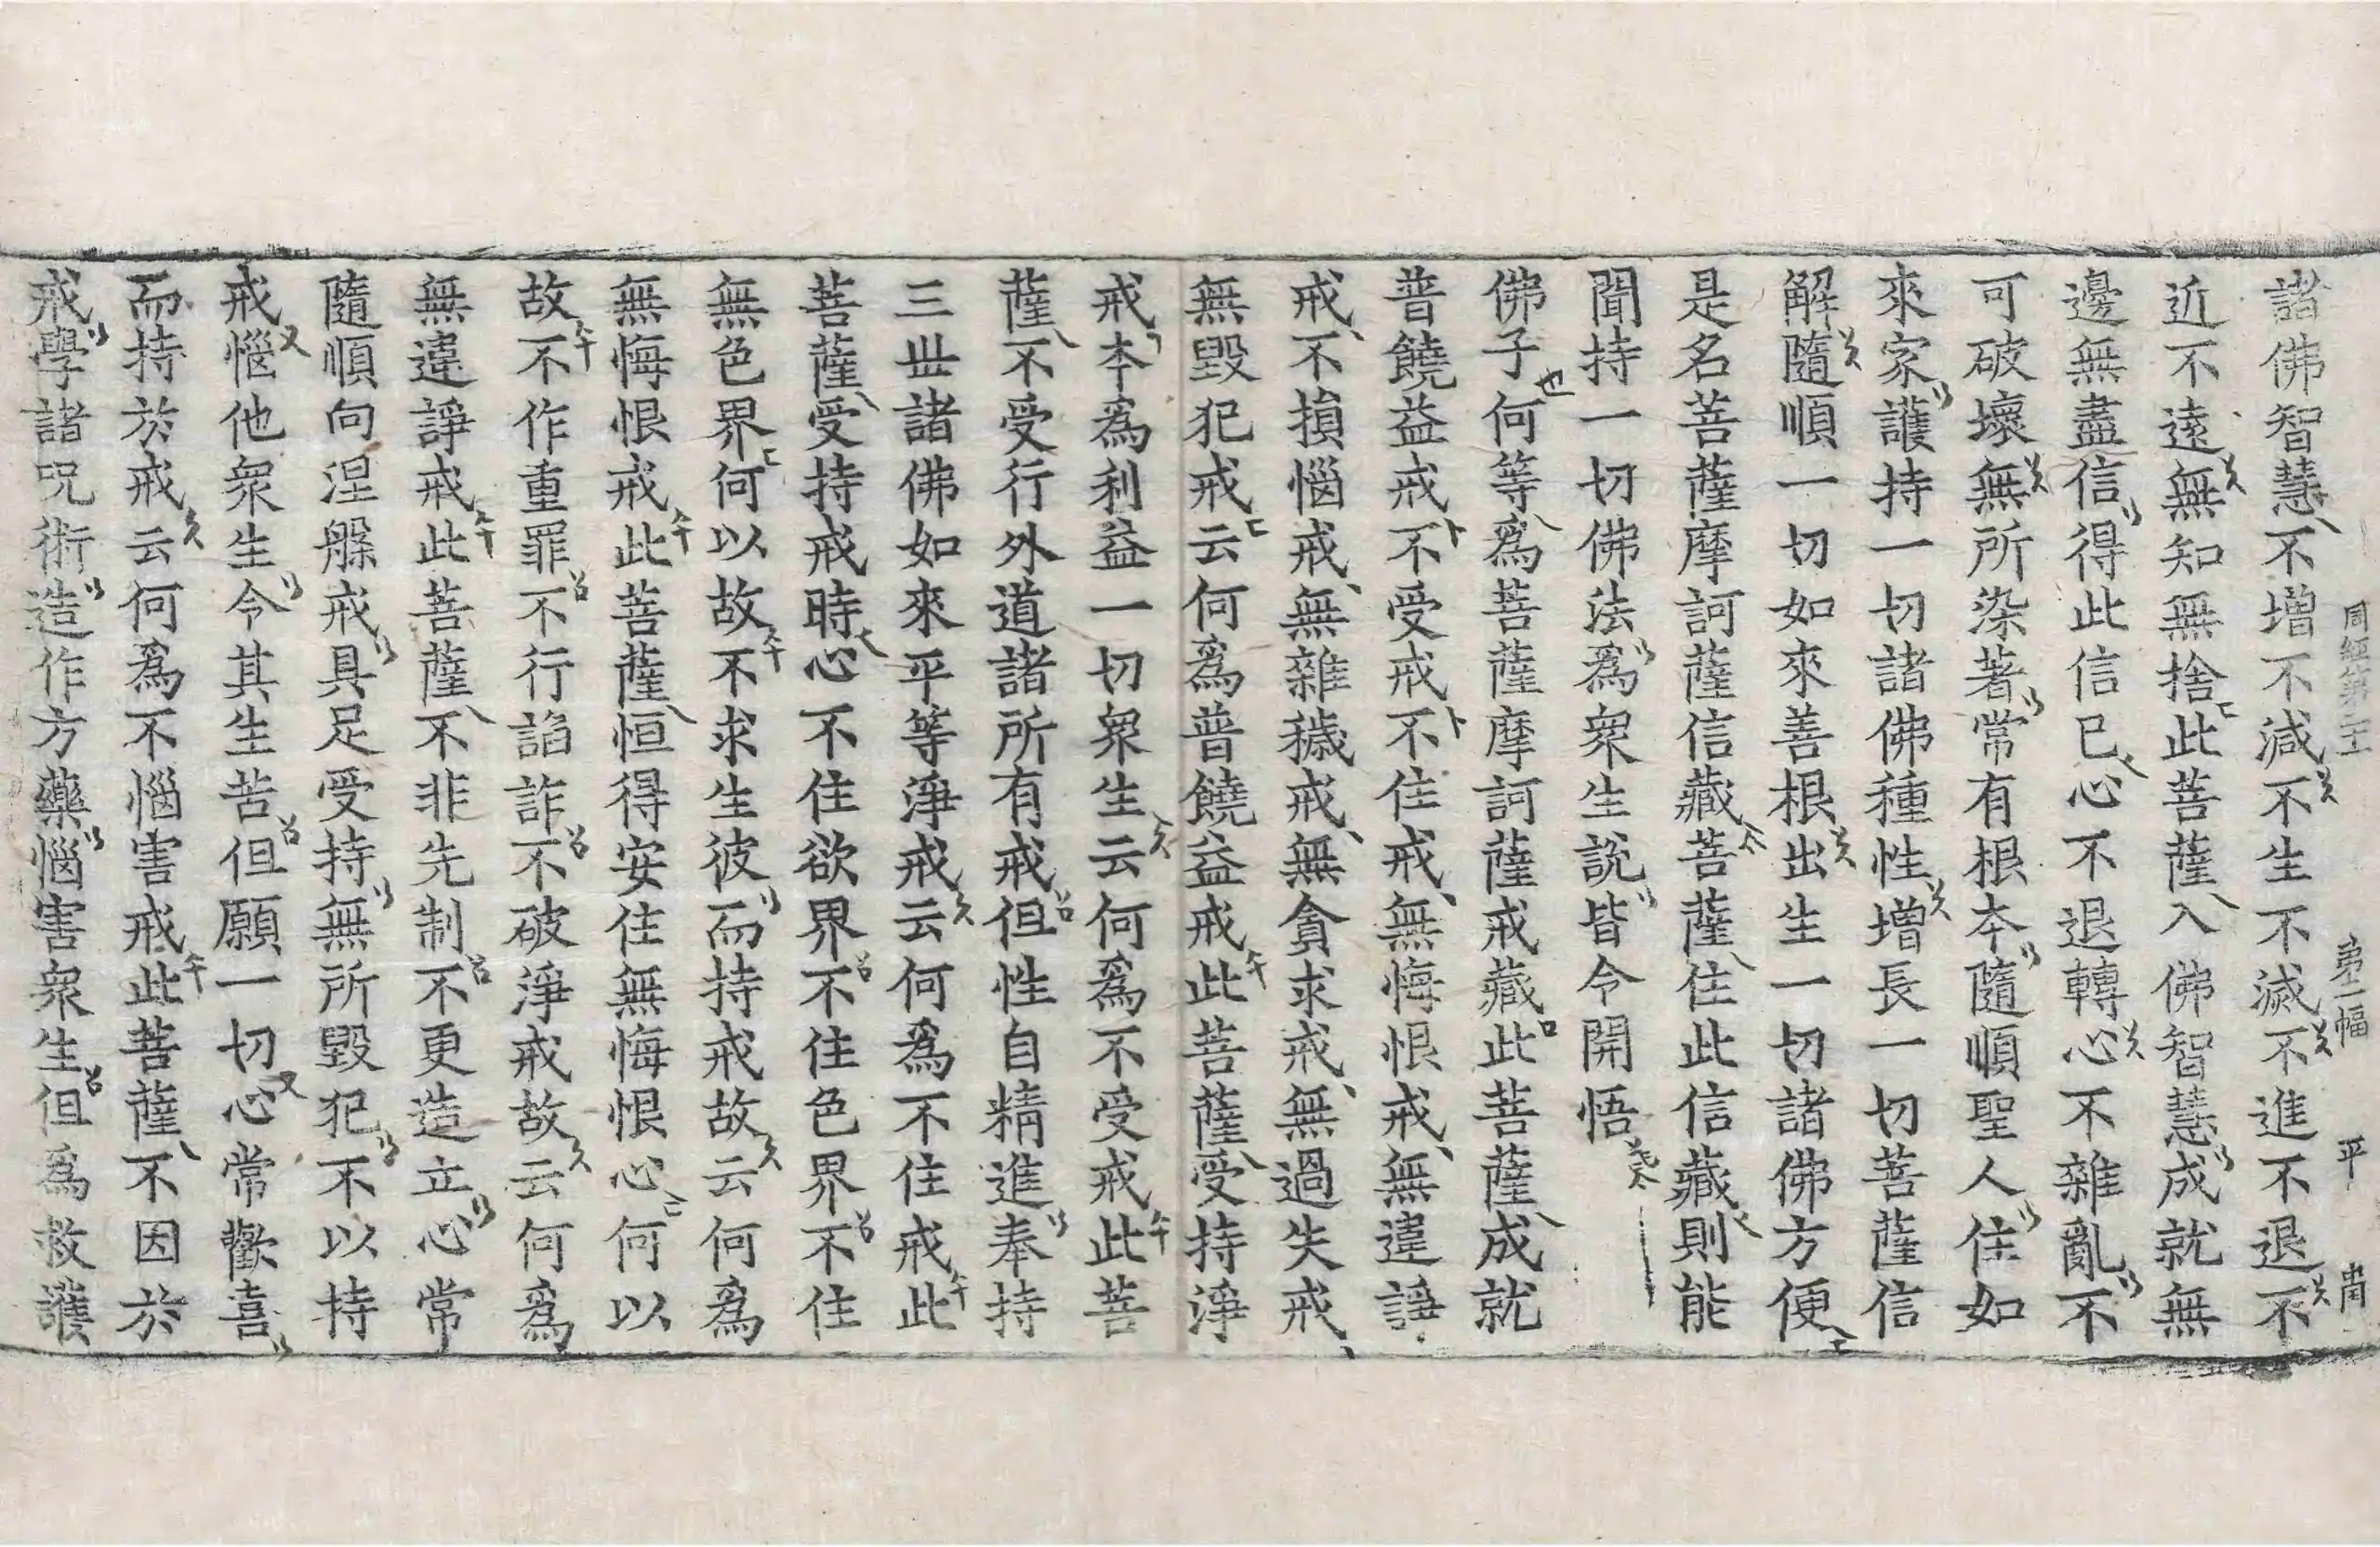 周經第二十 第二幅 平 冑
諸佛智慧不增不減不生不滅不進不退不
近不遠無知無捨此菩薩入佛智慧成就無
邊無盡信得此信已心不退轉心不雜亂不
可破壞無所染著常有根本隨順聖人住如
來家護持一切諸佛種性增長一切菩薩信
解隨順一切如來善根出生一切諸佛方便
是名菩薩摩訶薩信藏菩薩住此信藏則能
聞持一切佛法為眾生說皆令開悟
佛子何等為菩薩摩訶薩戒藏此菩薩成就
普饒益戒不受戒不住戒無悔恨戒無違諍
戒不損惱戒無雜穢戒無貪求戒無過失戒
無毀犯戒云何為普饒益戒此菩薩受持淨
戒本為利益一切眾生云何為不受戒此菩
薩不受行外道諸所有戒但性自精進奉持
三世諸佛如來平等淨戒云何為不住戒此
菩薩受持戒時心不住欲界不住色界不住
無色界何以故不求生彼而持戒故云何為
無悔恨戒此菩薩恒得安住無悔恨心何以
故不作重罪不行諂詐不破淨戒故云何為
無違諍戒此菩薩不非先制不更造立心常
隨順向涅槃戒具足受持無所毀犯不以持
戒惱他眾生令其生苦但願一切心常歡喜
而持於戒云何為不惱害戒此菩薩不因於
戒學諸呪術造作方藥惱害眾生但為救護